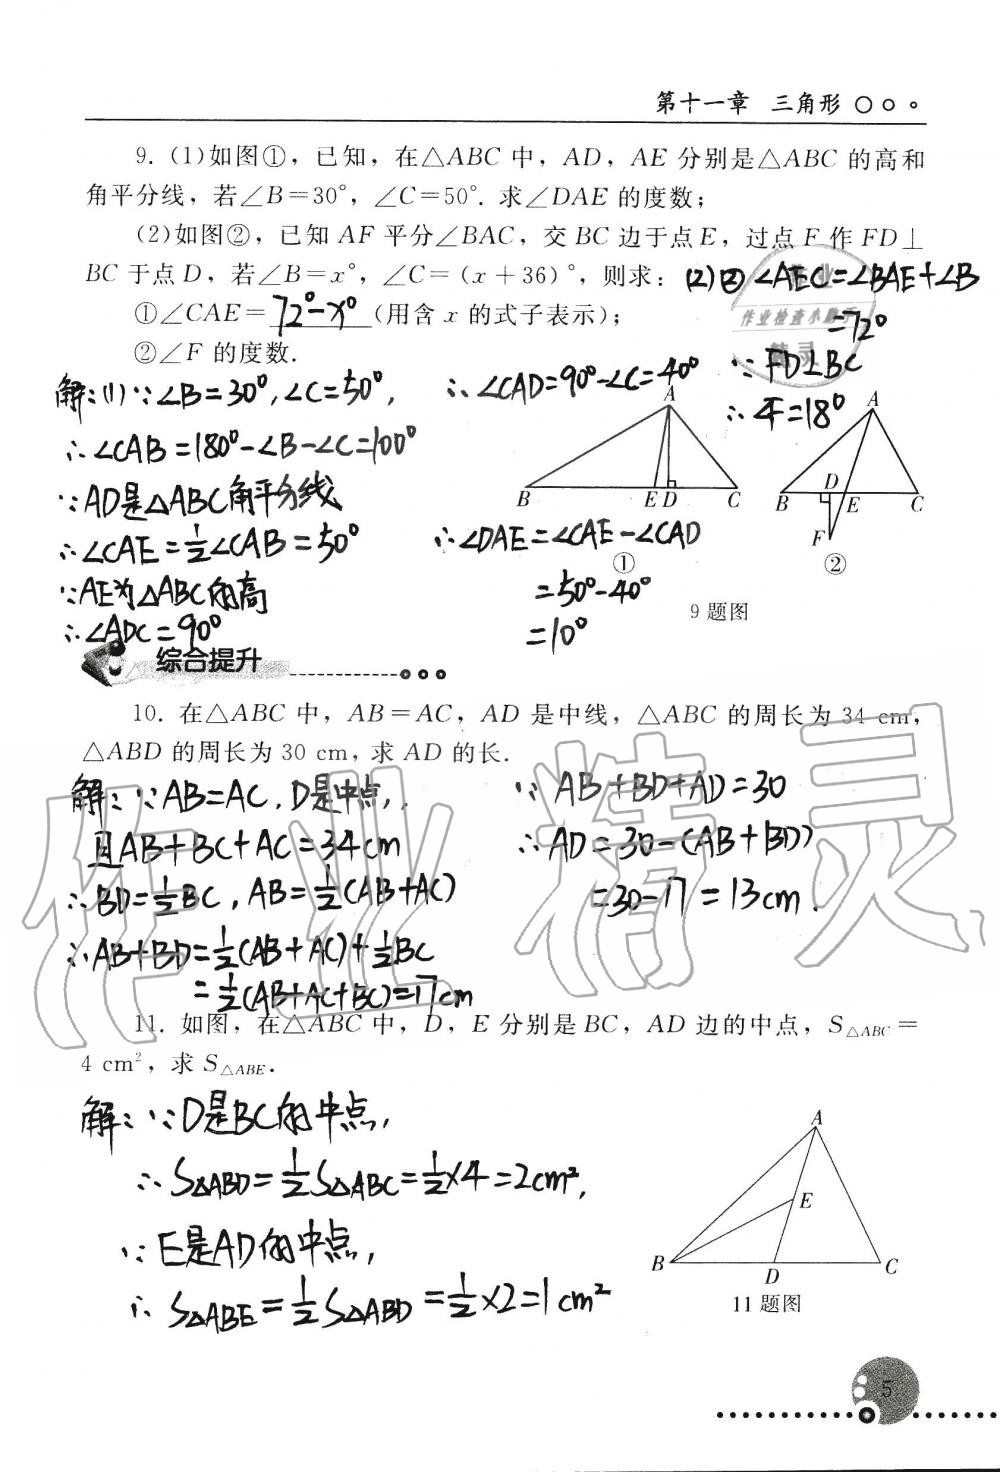 第十一章 三角形
9. (1)如图①，已知，在△ABC 中，AD，AE 分别是△ABC 的高和
角平分线，若∠B=30°，∠C=50°. 求∠DAE 的度数；
(2)如图②，已知 AF 平分∠BAC，交 BC 边于点 E，过点 F 作 FD⊥
BC 于点 D，若∠B=x°，∠C=(x+36)°，则求：
①∠CAE=72°-x°(用含 x 的式子表示)；
②∠F 的度数.
(2)② ∠AEC=∠BAE+∠B
=72°
∵FD⊥BC
∴∠F=18°
作业检查小助手
精灵
解:(1)∵∠B=30°,∠C=50°,
∴∠CAB=180°-∠B-∠C=100°
∵AD是△ABC角平分线
∴∠CAE=1/2∠CAB=50°
∵AE为△ABC的高
∴∠ADC=90°
∴∠CAD=90°-∠C=40°
∴∠DAE=∠CAE-∠CAD
=50°-40°
=10°
A
B E D C
①
A
B D E C
F
②
9 题图
综合提升
10. 在△ABC 中，AB=AC，AD 是中线，△ABC 的周长为 34 cm，
△ABD 的周长为 30 cm，求 AD 的长.
解:∵AB=AC,D是中点,
且AB+BC+AC=34cm
∴BD=1/2BC,AB=1/2(AB+AC)
∴AB+BD=1/2(AB+AC)+1/2BC
=1/2(AB+AC+BC)=17cm
∵AB+BD+AD=30
∴AD=30-(AB+BD)
=30-17=13cm.
作业精灵
11. 如图，在△ABC 中，D，E 分别是 BC，AD 边的中点，S△ABC=
4 cm²，求 S△ABE.
解:∵D是BC的中点,
∴S△ABD=1/2S△ABC=1/2×4=2cm²,
∵E是AD的中点,
∴S△ABE=1/2S△ABD=1/2×2=1cm²
A
E
B D C
11 题图
5